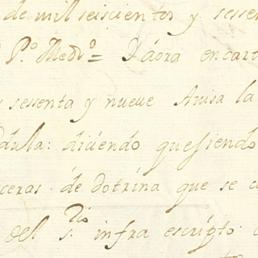 de mil seiscientos y sesse
P.º Medi.º = Daora encart
s sesenta y nueve Avisa la
dula: diciendo que siendo
ceras de dotrina que se c
del S.rio infra escripto